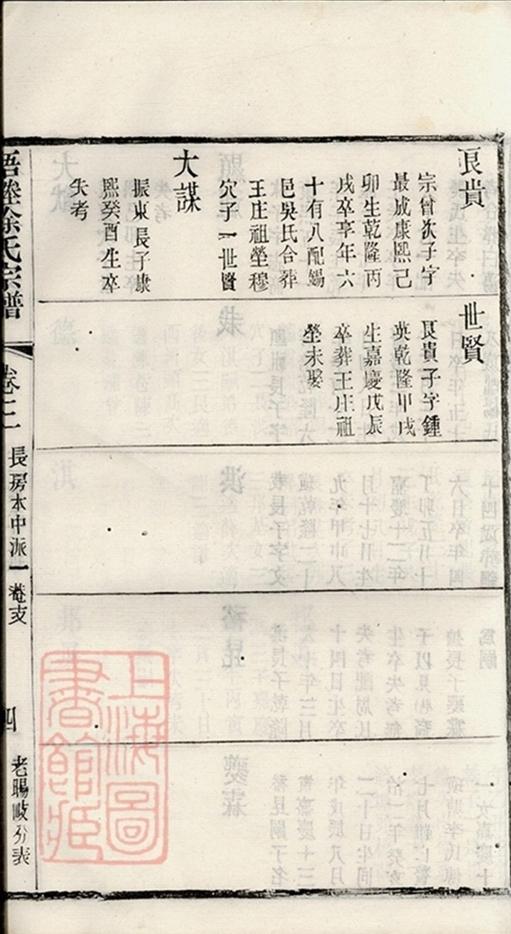 良貴
宗曾次子字
最成康熙己
卯生乾隆丙
戌卒享年六
十有八配錫
邑吳氏合葬
王庄祖塋穆
穴子一世賢
大謀
振東長子康
熙癸酉生卒
失考
世賢
良貴子字鍾
英乾隆甲戌
生嘉慶戊辰
卒葬王庄祖
塋未娶
徐氏宗譜
卷三
長房本中派
四
上海圖
書館藏